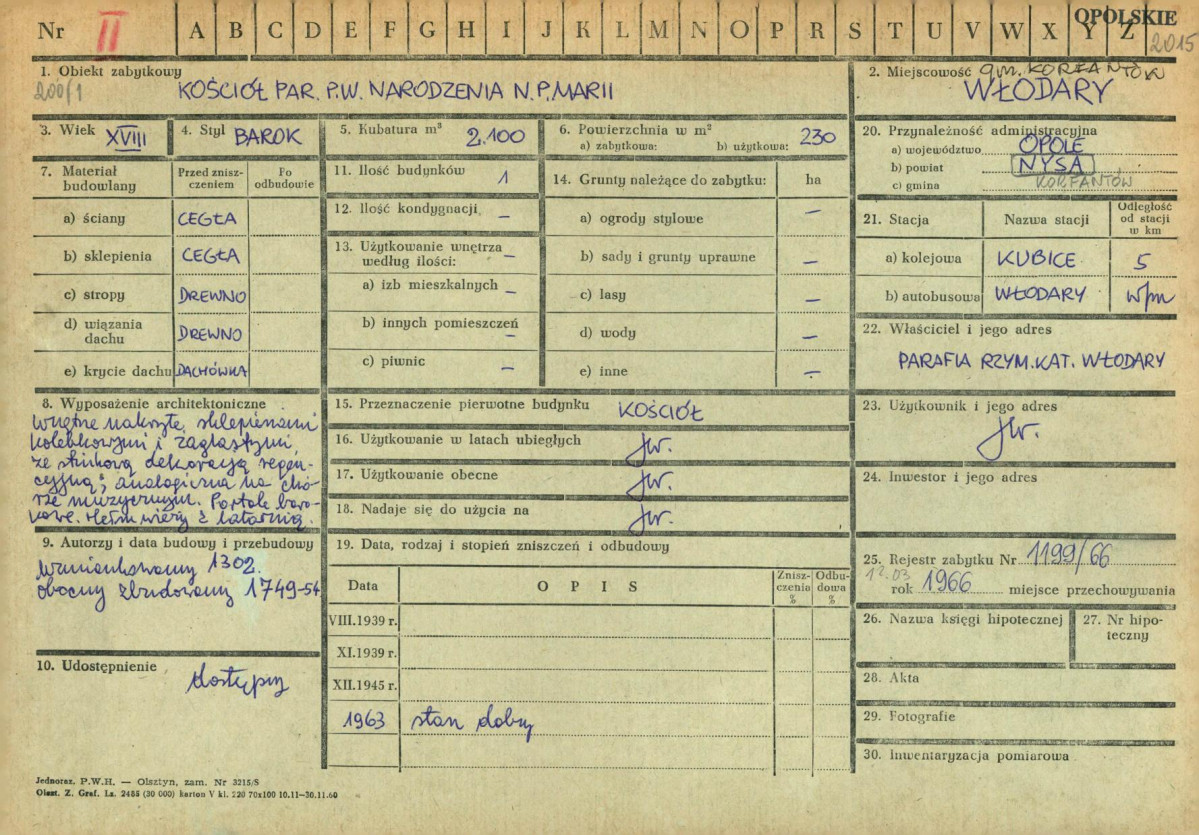 Nr II A B C D E F G H I J K L M N O P R S T U V W X Y Z OPOLSKIE
2015
1. Obiekt zabytkowy
200/1 KOŚCIÓŁ PAR. P.W. NARODZENIA N.P.MARII
2. Miejscowość gm. KORFANTÓW
WŁODARY
3. Wiek XVIII
4. Styl BAROK
5. Kubatura m³ 2.100
6. Powierzchnia w m²
a) zabytkowa: b) użytkowa: 230
7. Materiał budowlany
Przed zniszczeniem
Po odbudowie
a) ściany CEGŁA
b) sklepienia CEGŁA
c) stropy DREWNO
d) wiązania dachu DREWNO
e) krycie dachu DACHÓWKA
8. Wyposażenie architektoniczne
Wnętrze nakryte sklepieniami
kolebkowymi i żaglastymi,
ze stiukową dekoracją regen-
cyjną; analogiczna na chó-
rze muzycznym. Portale baro-
kowe. Hełm wieży z latarnią.
9. Autorzy i data budowy i przebudowy
wzmiankowany 1302.
obecny zbudowany 1749-54
10. Udostępnienie
dostępny
11. Ilość budynków 1
12. Ilość kondygnacji –
13. Użytkowanie wnętrza
według ilości: –
a) izb mieszkalnych –
b) innych pomieszczeń –
c) piwnic –
14. Grunty należące do zabytku: ha
a) ogrody stylowe –
b) sady i grunty uprawne –
c) lasy –
d) wody –
e) inne –
15. Przeznaczenie pierwotne budynku KOŚCIÓŁ
16. Użytkowanie w latach ubiegłych jw.
17. Użytkowanie obecne jw.
18. Nadaje się do użycia na jw.
19. Data, rodzaj i stopień zniszczeń i odbudowy
Data
O P I S
Zniszczenia %
Odbudowa %
VIII.1939 r.
XI.1939 r.
XII.1945 r.
1963 stan dobry
20. Przynależność administracyjna
a) województwo OPOLE
b) powiat NYSA
c) gmina KORFANTÓW
21. Stacja
Nazwa stacji
Odległość od stacji w km
a) kolejowa KUBICE 5
b) autobusowa WŁODARY w/m
22. Właściciel i jego adres
PARAFIA RZYM.KAT. WŁODARY
23. Użytkownik i jego adres
jw.
24. Inwestor i jego adres
25. Rejestr zabytku Nr 1199/66
12.03
rok 1966 miejsce przechowywania
26. Nazwa księgi hipotecznej
27. Nr hipoteczny
28. Akta
29. Fotografie
30. Inwentaryzacja pomiarowa
Jednoraz. P.W.H. — Olsztyn, zam. Nr 3215/S
Olszt. Z. Graf. Lz. 2485 (30 000) karton V kl. 220 70x100 10.11—30.11.60